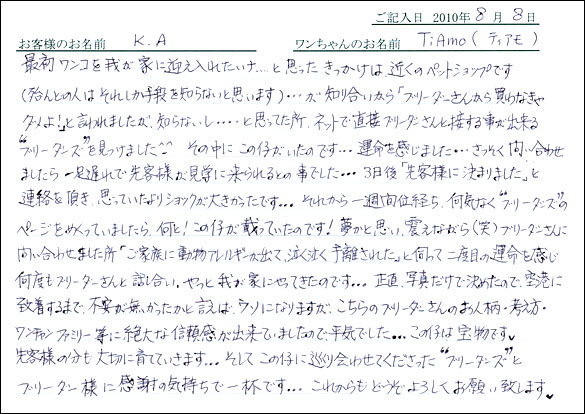 ご記入日 2010年 8月 8日
お客様のお名前 K.A ワンちゃんのお名前 TiAmo (ティアモ)
最初ワンコを我が家に迎え入れたいナ…と思ったきっかけは近くのペットショップです
(殆んどの人はそれしか手段を知らないと思います)…が知り合いから「ブリーダーさんから買わなきゃ
ダメよ!」と言われましたが、知らないし…と思ってた所、ネットで直接ブリーダーさんと接する事が出来る
"ブリーダーズ"を見つけました その中にこの仔がいたのです…運命を感じました…さっそく問い合わせ
ましたら一足遅れで先客様が見学に来られるとの事でした…3日後「先客様に決まりました」と
連絡を頂き、思っていたよりショックが大きかったです…それから一週間位経ち、何気なく"ブリーダーズ"の
ページをめくっていましたら、何と!この仔が載っていたのです!夢かと思い、震えながら(笑)ブリーダーさんに
問い合わせました所「ご家族に動物アレルギーが出て、泣く泣く手離された」と伺って二度目の運命を感じ
何度もブリーダーさんと話し合い、やっと我が家にやってきたのです…正直、写真だけで決めたので、空港に
到着するまで、不安が無かったかと言えば、ウソになりますが、こちらのブリーダーさんのお人柄・考え方・
ワンチャンファミリー等に絶大な信頼感が出来ていましたので平気でした…この仔は宝物です♥
先客様の分も大切に育てていきます…そしてこの仔に巡り会わせてくださった"ブリーダーズ"と
ブリーダー様に感謝の気持ちで一杯です…これからもどうぞよろしくお願い致します♥